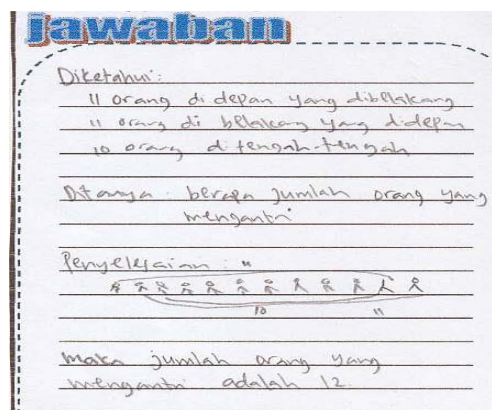 jawaban
Diketahui:
11 orang di depan yang dibelakang
11 orang di belakang yang didepan
10 orang di tengah-tengah
Ditanya : berapa jumlah orang yang
mengantri
Penyelesaian : 11
10 11
maka jumlah orang yang
mengantri adalah 12.